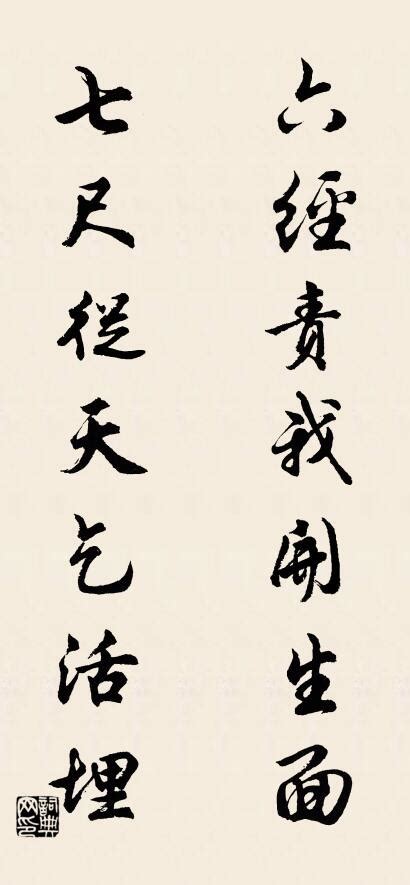 六經責我開生面
七尺從天乞活埋
詞典网印